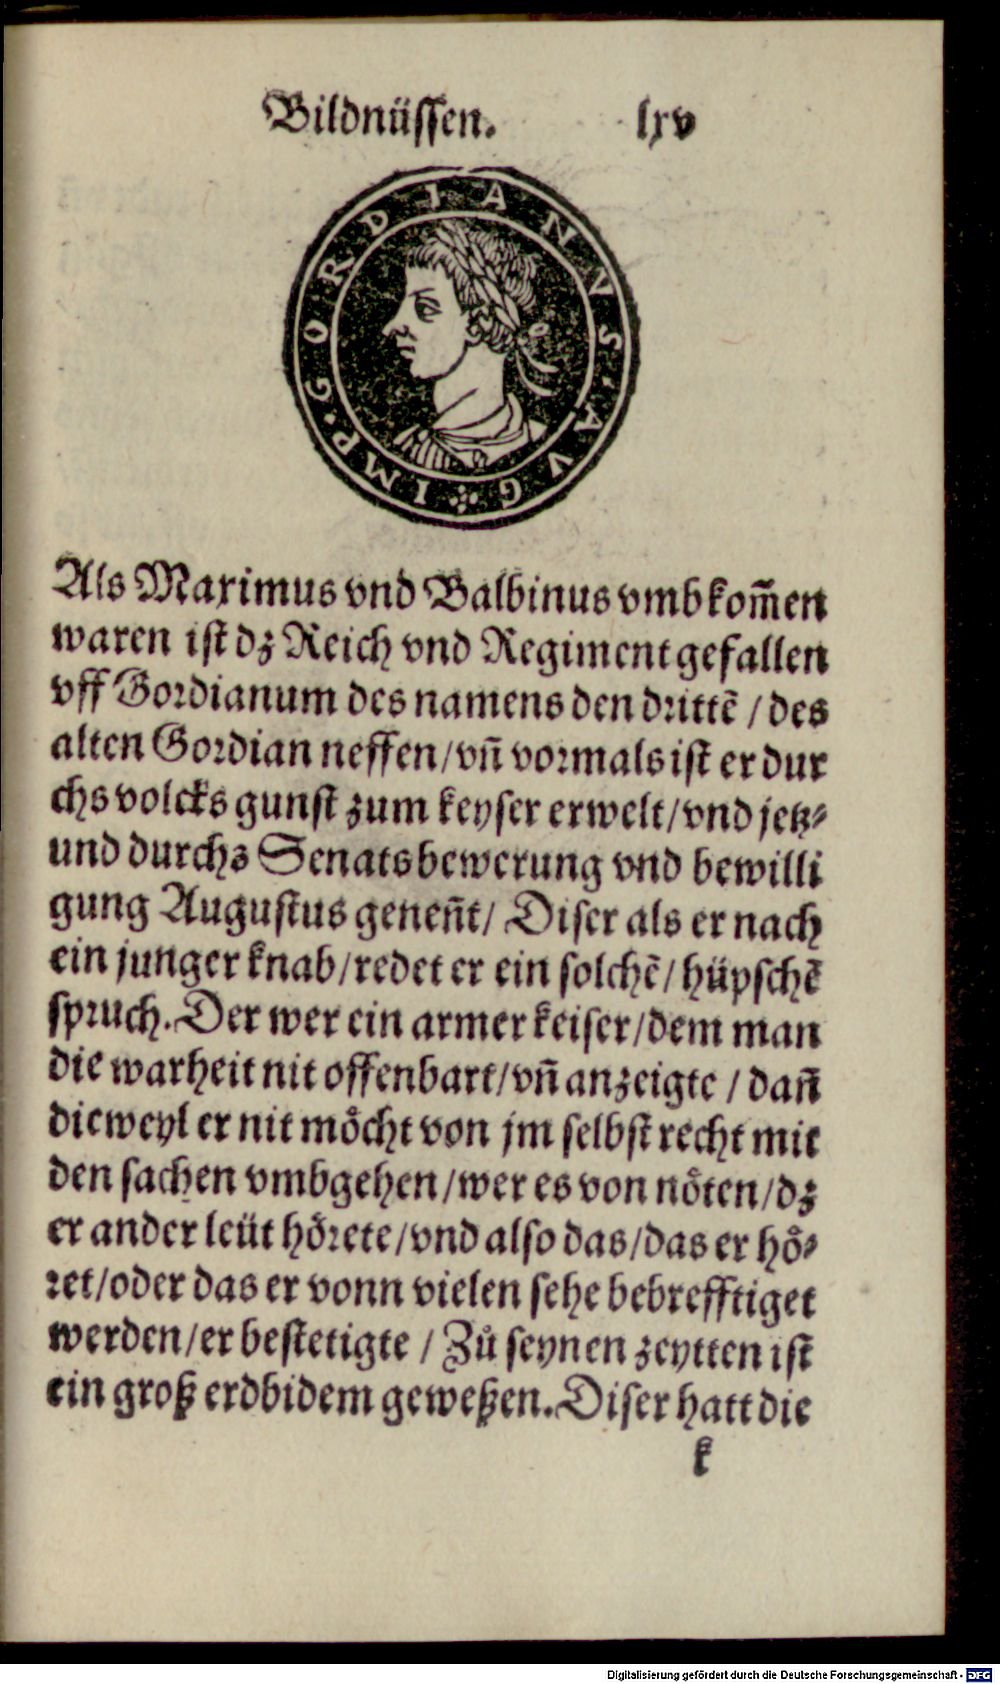 Bildnüssen. lxv
IMP · GORDIANVS · AVG
Als Maximus vnd Balbinus vmbkom̄en
waren ist dz Reich vnd Regiment gefallen
vff Gordianum des namens den drittē / des
alten Gordian neffen / vn̄ vormals ist er dur
chs volcks gunst zum keyser erwelt / vnd jetz⸗
und durchs Senats bewerung vnd bewilli
gung Augustus genen̄t / Diser als er nach
ein junger knab / redet er ein solchē / hüpschē
spruch. Der wer ein armer keiser / dem man
die warheit nit offenbart / vn̄ anzeigte / dan̄
dieweyl er nit moͤcht von jm selbst recht mit
den sachen vmbgehen / wer es von noͤten / dz
er ander leüt hoͤrete / vnd also das / das er hoͤ⸗
ret / oder das er vonn vielen sehe bebrefftiget
werden / er bestetigte / Zů seynen zeytten ist
ein groß erdbidem geweßen. Diser hatt die
k
Digitalisierung gefördert durch die Deutsche Forschungsgemeinschaft - DFG